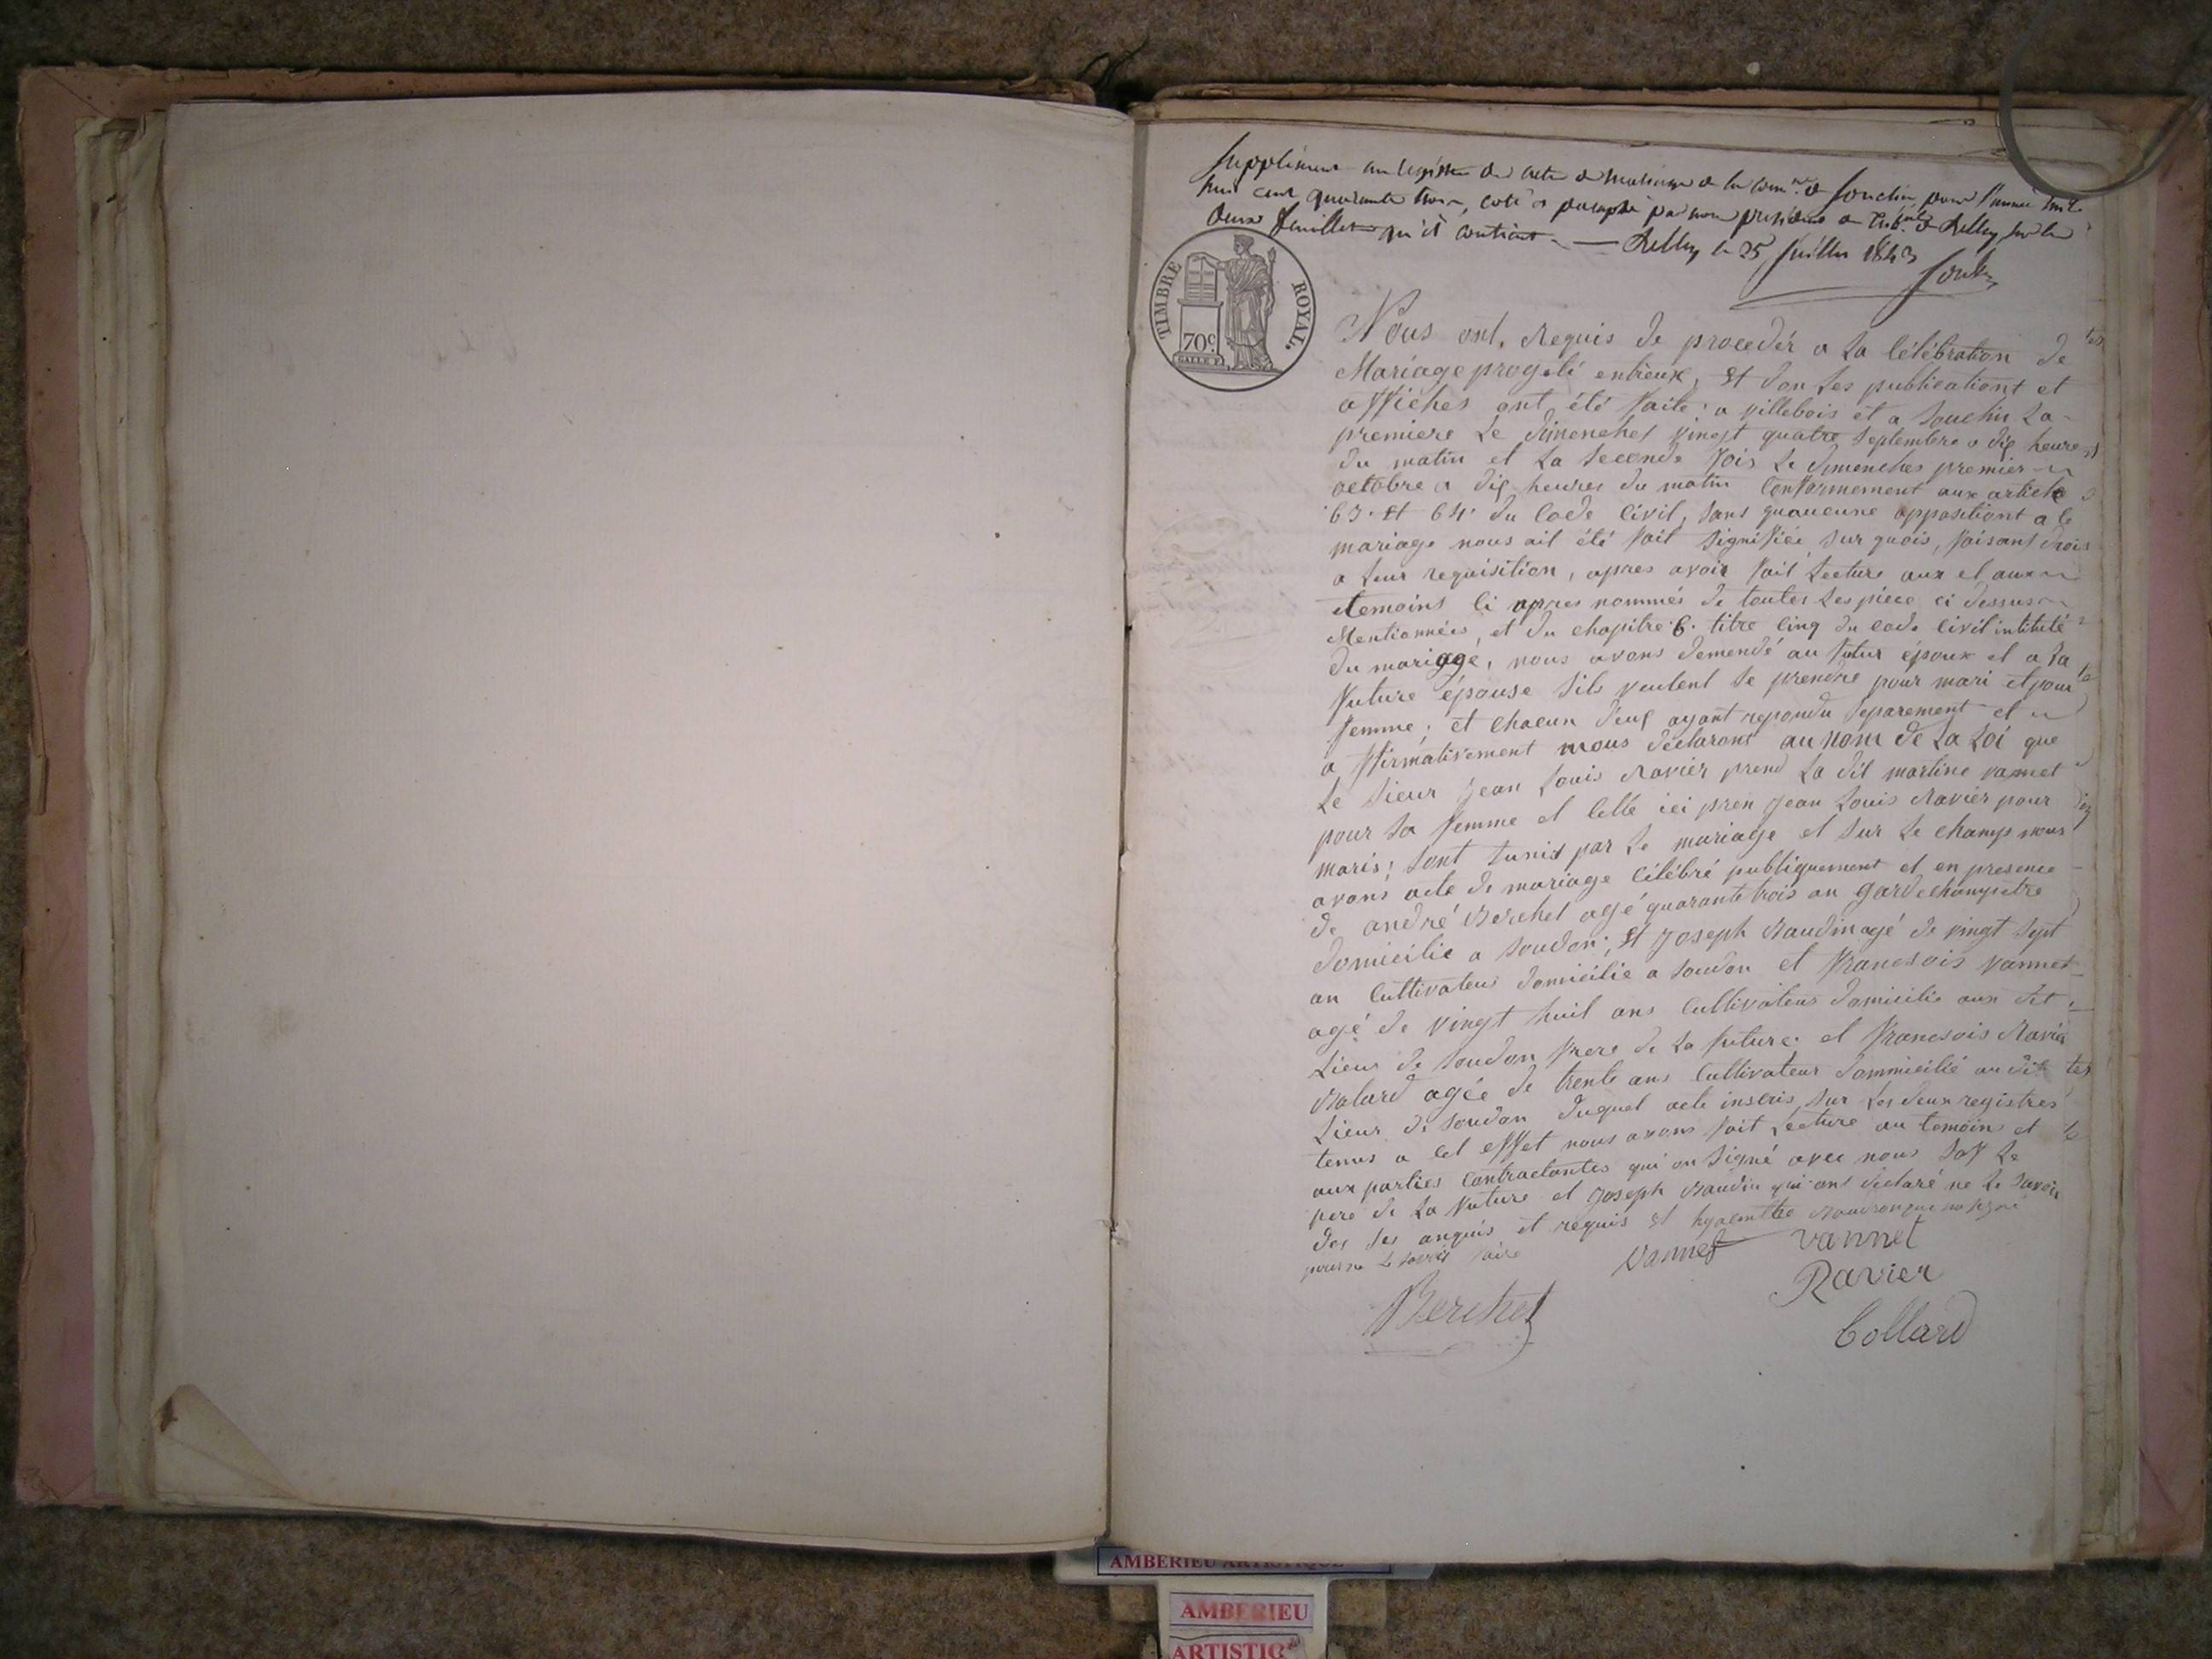 Supplément au registre des actes de mariage de la comne de Souclin pour l'année mil
huit cent quarante trois, coté et paraphé par nous président du trib. de Belley sur les
deux feuillets qu'il contient. — Belley le 25 juillet 1843
TIMBRE ROYAL.
70c
Nous ont, Requis de procedér a la Célébration de
Mariage progeté entrieux, Et don les publicationt et
affiches ont été faite; a villebois et a Souclin La
premiere Le dimenches vingt quatre Septembre a dix heures
du matin et La Seconde fois Le dimenches premier
octobre a dix heures du matin Conformement aux article
63. Et 64. du Code Civil, Sans quaucune oppositiont a le
mariage nous ait été fait Signifiée, Sur quois, faisant drois
a Leur requisition, apres avoir fait Lecture aux et aux
temoins Ci apres nommés de toutes Les piece ci dessus
Mentionnées, et du chapitre 6. titre Cinq du code Civil intitulé
du mariage, nous avons demendé au futur époux et a La
future épouse Sils veulent Se prendre pour mari et pour
femme; et Chacun deux ayant repondu Separement et
a ffirmativement nous déclarons au nom de La Loi que
Le Sieur Jean Louis Ravier prend La dit martine vannet
pour Sa femme et Celle ici pren Jean Louis Ravier pour
maris; Sont tunis par Le mariage et Sur Le champ nous
avons acte de mariage Célébré publiquement et en presence
de andré Berchet agé quarante trois an garde champetre
domicilie a Soudon; Et Joseph Baudin agé de vingt Sept
an Cultivateur domicilie a Soudon et francsois vannet
agé de vingt huit ans Cultivateur domicilie aux dit
Lieux de Soudon frere de La future; et francsois Ravier
Balard agée de trente ans Cultivateur dommicilié au dit
Lieux de Soudon duquel acte inscris Sur Les deux registres
tenus a Cet effet nous avons fait Lecture au temoins et
aux parties Contractantes qui on Signé avec nous Saf Le
pere de La future et Joseph Baudin qui ont declaré ne Le Savoir
des Ses anquis et requis Et hyacinthe
pour ne Le Savoir faire
vannet vannet
Ravier
Berchet
Collard
AMBERIEU ARTISTIQUE
AMBERIEU
ARTISTIQ